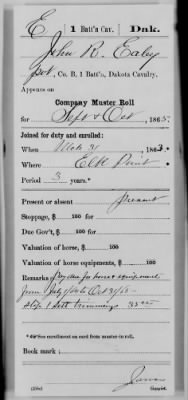 E | 1 Batt'n Cav. | Dak.
John R. Ealy
Pvt, Co. B, 1 Batt'n, Dakota Cavalry.
Appears on
Company Muster Roll
for Sept & Oct, 1865.
Joined for duty and enrolled:
When Mch 31, 1863.
Where Elk Point
Period 3 years.*
Present or absent present
Stoppage, $ 100 for
Due Gov't, $ 100 for
Valuation of horse, $ 100
Valuation of horse equipments, $ 100
Remarks: for horse & equipments
from July 1/65 to Oct 31/65
1 Sett trimmings
*See enrollment on card from muster-in roll.
Book mark:
(358c) Copyist.